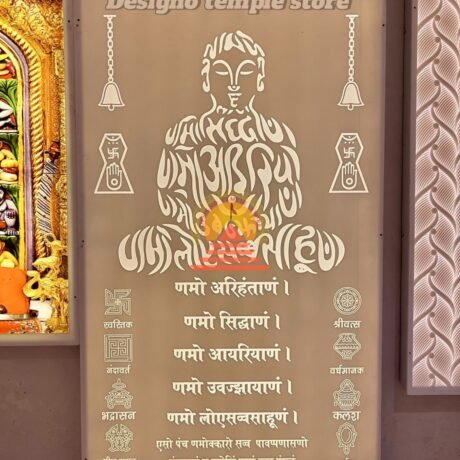 Designo temple store
णमो अरिहंताणं ।
णमो सिद्धाणं ।
णमो आयरियाणं ।
णमो उवज्झायाणं ।
णमो लोएसव्वसाहूणं ।
एसो पंच णमोक्कारो सव्व पावप्पणासणो
स्वस्तिक
नंदावर्त
भद्रासन
श्रीवत्स
वर्धमानक
कलश